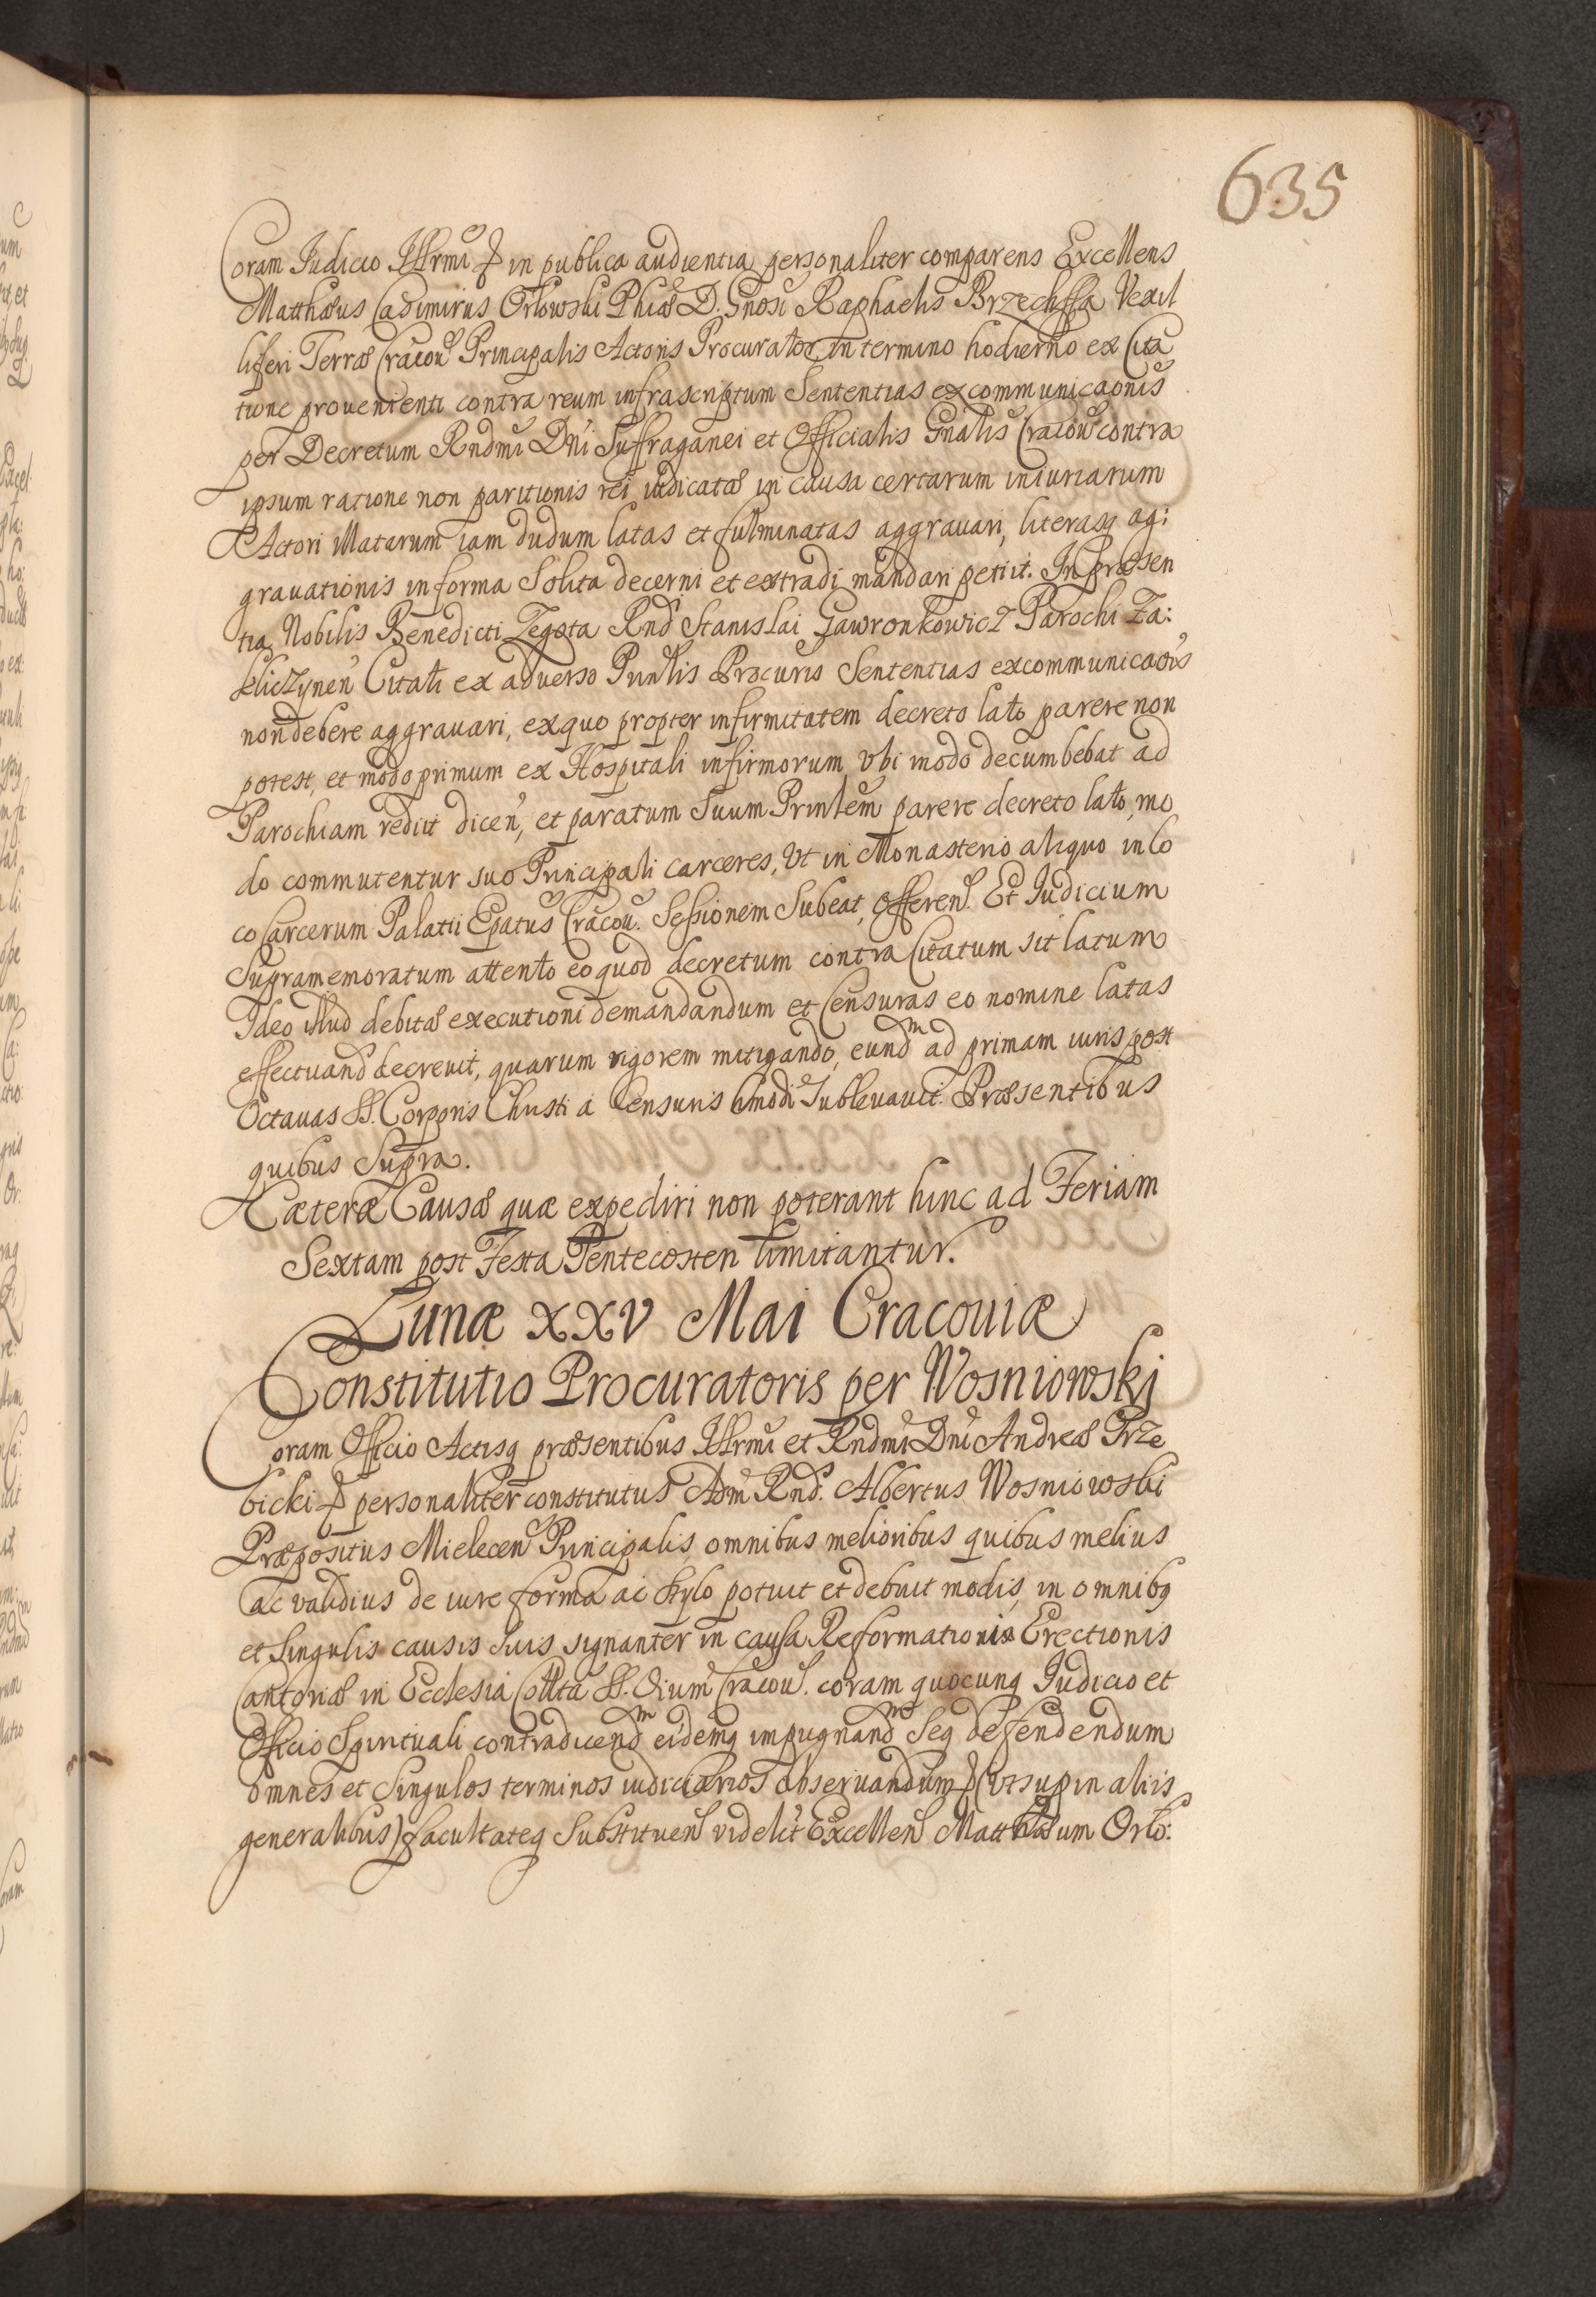 635
Coram Iudicio Illrmi & in publica audientia personaliter comparens Excellens
Matthæus Casimirus Orlowski Phiæ D. Gnosi Raphaelis Brzechffa Vexil
liferi Terræ Cracou Principalis Actoris Procurator in termino hodierno ex Cita
tione prouenienti contra reum infrascriptum Sententias excommunicaonis
per Decretum Rndmi Dni Suffraganei et Officialis Gnalis Cracou contra
ipsum ratione non paritionis rei iudicatæ in causa certarum iniuriarum
Actori illatarum iam dudum latas et fulminatas aggrauari, literasq agi
grauationis in forma Solita decerni et extradi mandari petiit. In præsen
tia Nobilis Benedicti Zegota Rnd Stanislai Gawronkowicz Parochi Za:
kliczynen Citati ex aduerso Prinlis Procuris Sententias excommunicaois
non debere aggrauari, exquo propter infirmitatem decreto lato parere non
potest, et modo primum ex Hospitali infirmorum vbi modo decumbebat ad
Parochiam rediit dicen, et paratum Suum Prinlem parere decreto lato, mo
do commutentur suo Principali carceres, Vt in Monasterio aliquo in lo
co Carcerum Palatii Epatus Cracou. Sessionem Subeat, Offeren. Et Iudicium
Supramemoratum attento eo quod decretum contra Citatum sit latum
Ideo illud debitæ executioni demandandum et Censuras eo nomine latas
effectuand decreuit, quarum rigorem mitigando, eundm ad primam iuris post
Octauas SS. Corporis Christi a Censuris hmodi Subleuauit. Præsentibus
quibus Supra.
Cæteræ Causæ quæ expediri non poterant hinc ad Feriam
Sextam post Festa Pentecosten limitantur.
Lunæ XXV Mai Cracouiæ
Constitutio Procuratoris per Wosniowskj
Coram Officio Actisq præsentibus Illrmi et Rndmi Dni Andreæ Trze
bicki & personaliter constitutus Adm Rnd. Albertus Wosniowski
Præpositus Mielecen Principalis omnibus melioribus quibus melius
ac validius de iure forma ac stylo potuit et debuit modis, in omnibq
et Singulis causis Suis signanter in causa Reformationis Erectionis
Cantoriæ in Ecclesia Collta SS. Oium Cracou. coram quocunq Iudicio et
Officio Spirituali contradicendm eidemq impugnandm Seq defendendum
omnes et Singulos terminos iudiciarios obseruandum & (vt sup in aliis
generalibus) facultateq Substituen videlit Excellen Matthæum Orlo: